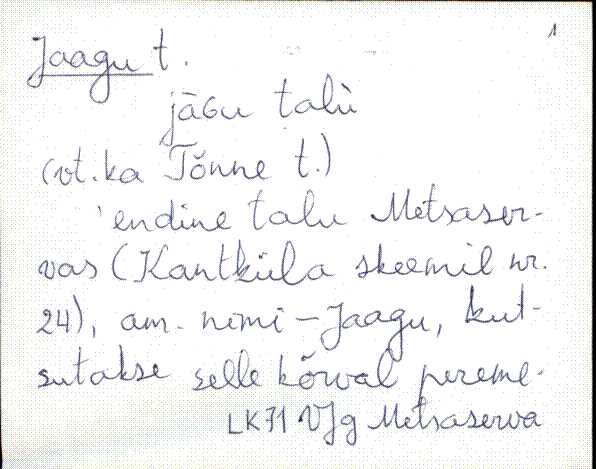 1
Jaagu t.
jāɢu talù
(vt. ka Tõnne t.)
'endine talu Metsaser-
vas (Kantküla skeemil nr.
24), am. nimi – Jaagu, kut-
sutakse selle kõrval pereme-
LK71 VJg Metsaserva